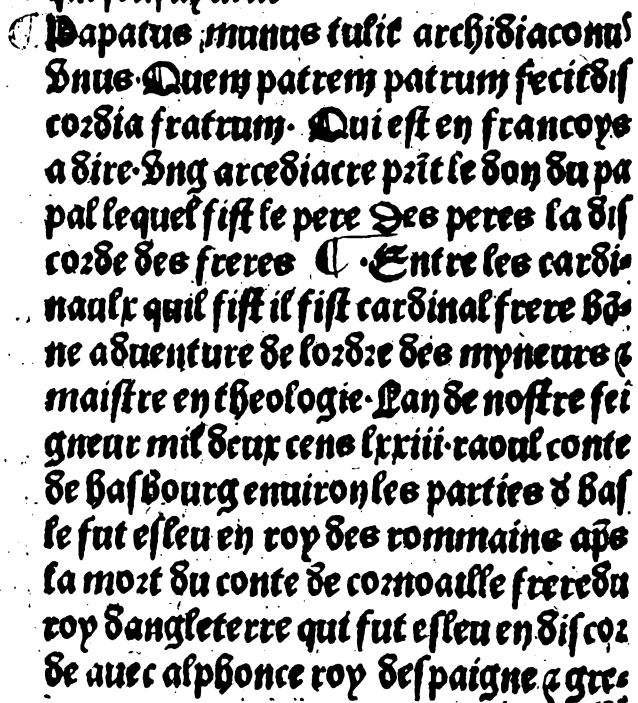 ¶ Papatus munus tulit archidiaconus
vnus. Quem patrem patrum fecit dis
cordia fratrum. Qui est en francoys
a dire. Vng arcediacre prīt le don du pa
pal lequel fist le pere Des peres la dis
corde des freres ¶ . Entre les cardi-
naulx quil fist il fist cardinal frere bō-
ne aduenture de lordre des myneurs ⁊
maistre en theologie. Lan de nostre sei
gneur mil deux cens lxxiii. raoul conte
de hasbourg enuiron les parties d̕ bas
le fut esleu en roy des rommains ap̄s
la mort du conte de cornoaille frere du
roy dangleterre qui fut esleu en discor
de auec alphonce roy despaigne ⁊ gre-